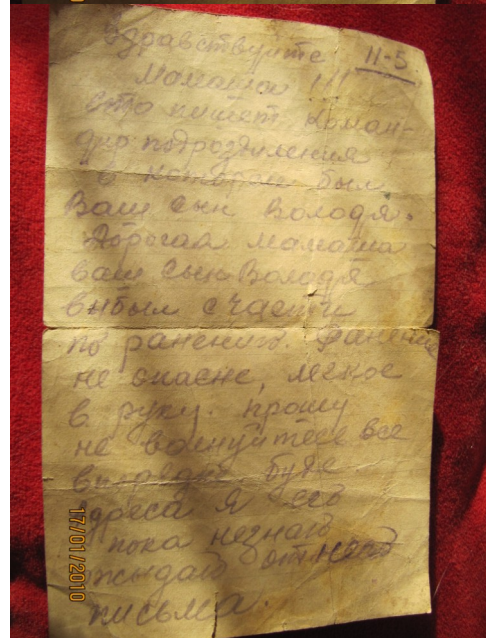 Здравствуйте
11-5
Мамаша !!!
Это пишет Коман-
дир подрозделения
в котором был
Ваш сын Володя.
Дорогая мамаша
ваш сын Володя
выбыл с части
по ранению. Ранение
не опасне, легкое
в руку. прошу
не волнуйтесь все
буде
адреса я его
пока незнаю
от него
письма.
17/01/2010